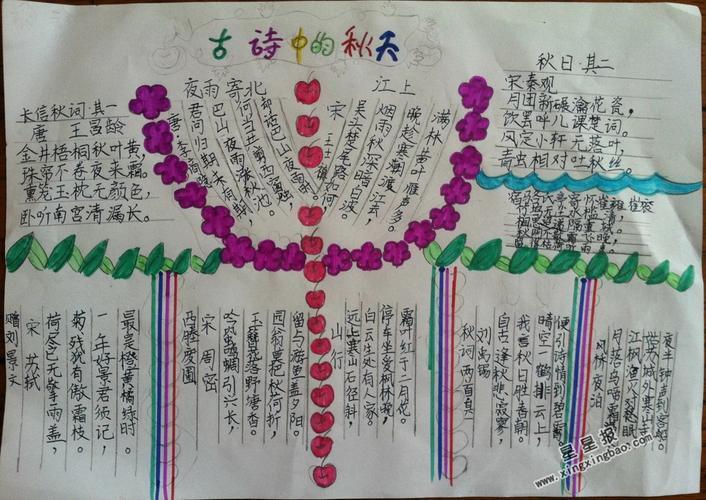 古诗中的秋天
长信秋词·其一
唐 王昌龄
金井梧桐秋叶黄，
珠帘不卷夜来霜。
熏笼玉枕无颜色，
卧听南宫清漏长。
夜雨寄北
唐·李商隐
君问归期未有期，
巴山夜雨涨秋池。
何当共剪西窗烛，
却话巴山夜雨时。
江上
宋 王士
吴楚尾路如何，
烟雨秋深暗白波。
晚趁寒潮渡江去，
满林黄叶雁声多。
秋日·其二
宋·秦观
月团新碾瀹花瓷，
饮罢呼儿课楚词。
风定小轩无落叶，
青虫相对吐秋丝。
崔雍崔衮
赠刘景文
宋 苏轼
荷尽已无擎雨盖，
菊残犹有傲霜枝。
一年好景君须记，
最是橙黄橘绿时。
西塍废圃
宋 周密
吟蛩鸣蜩引兴长，
玉簪花落野塘香。
园翁莫把秋荷折，
留与游鱼盖夕阳。
山行
远上寒山石径斜，
白云生处有人家。
停车坐爱枫林晚，
霜叶红于二月花。
秋词两首其一
刘禹锡
自古逢秋悲寂寥，
我言秋日胜春朝。
晴空一鹤排云上，
便引诗情到碧霄。
枫桥夜泊
月落乌啼霜
江枫渔火对愁眠
姑苏城外寒山寺
夜半钟声到客船。
星星报
www.xingxingbao.com